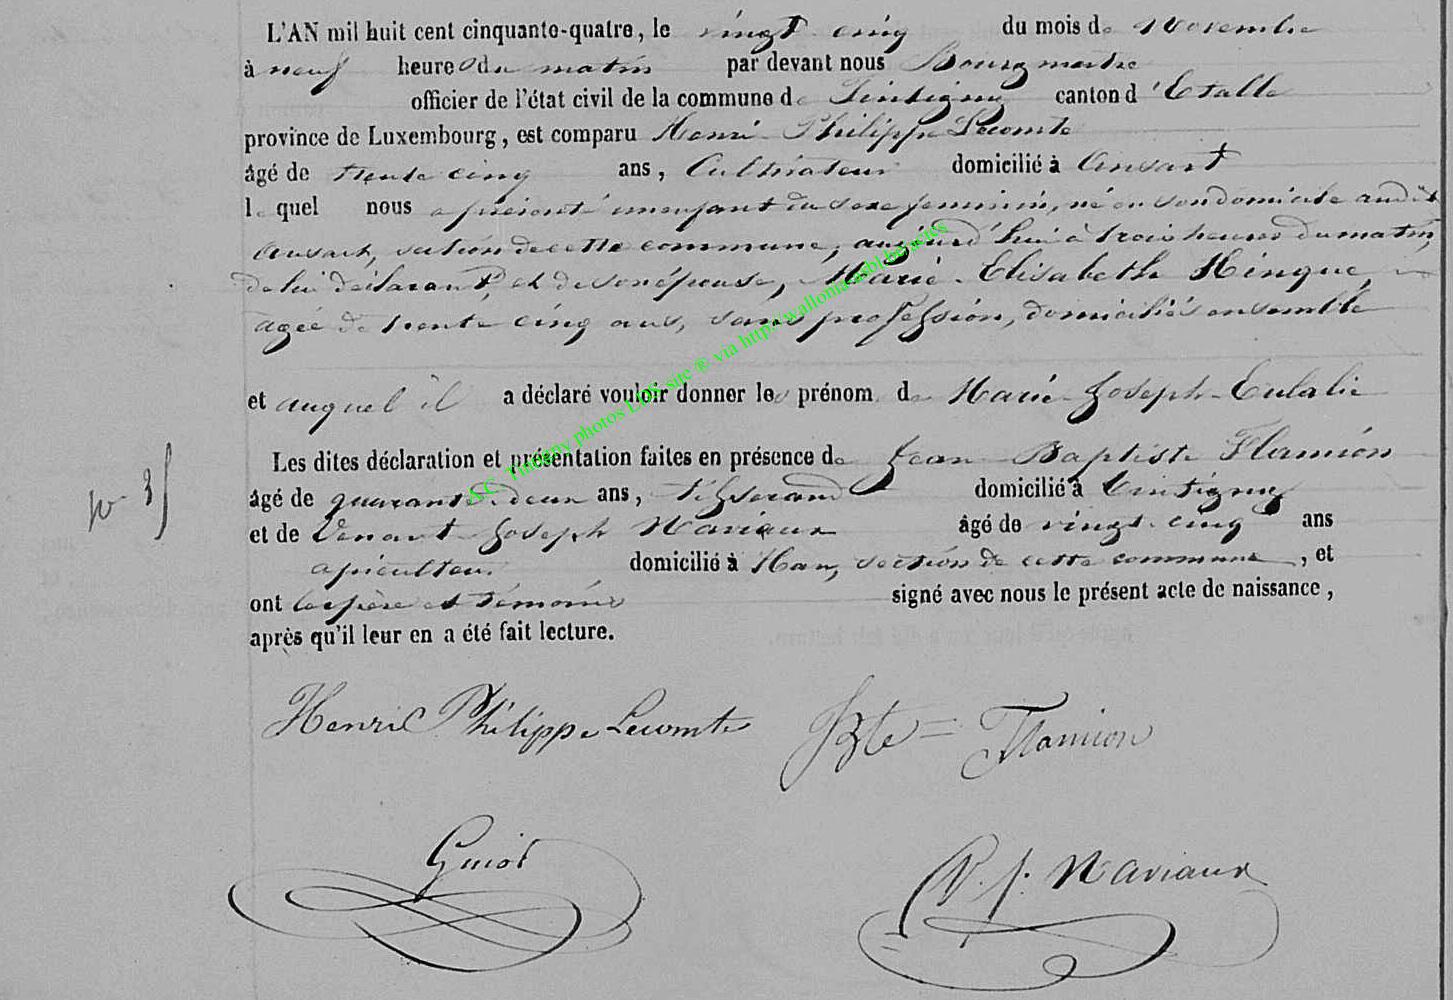 L'AN mil huit cent cinquante-quatre, le vingt cinq du mois de Novembre
à neuf heures du matin par devant nous Bourgmestre
officier de l'état civil de la commune de Tintigny canton d'Etalle
province de Luxembourg, est comparu Henri Philippe Lecomte
âgé de trente cinq ans, Cultivateur domicilié à Ansart
le quel nous a présenté un enfant du sexe feminin, né en son domicile audit
Ansart, section de cette commune, aujourd'hui à trois heures du matin,
de lui déclarant, et de son épouse, Marie Elisabeth Hinque
agée de trente cinq ans, sans profession, domiciliés ensemble
et auquel il a déclaré vouloir donner les prénom de Marie Joseph Eulalie
Les dites déclaration et présentation faites en présence de Jean Baptiste Flamion
No 35
âgé de quarante deux ans, tisserand domicilié à Tintigny
et de Venant Joseph Naviaux âgé de vingt cinq ans
apiculteur domicilié à Han, section de cette commune, et
ont les père et témoins signé avec nous le présent acte de naissance,
après qu'il leur en a été fait lecture.
Henri Philippe Lecomte JBte Flamion
Guiot V. J. Naviaux
A.C. Tintigny photos LDS site ® via http://wallonia-asbl.be/actes